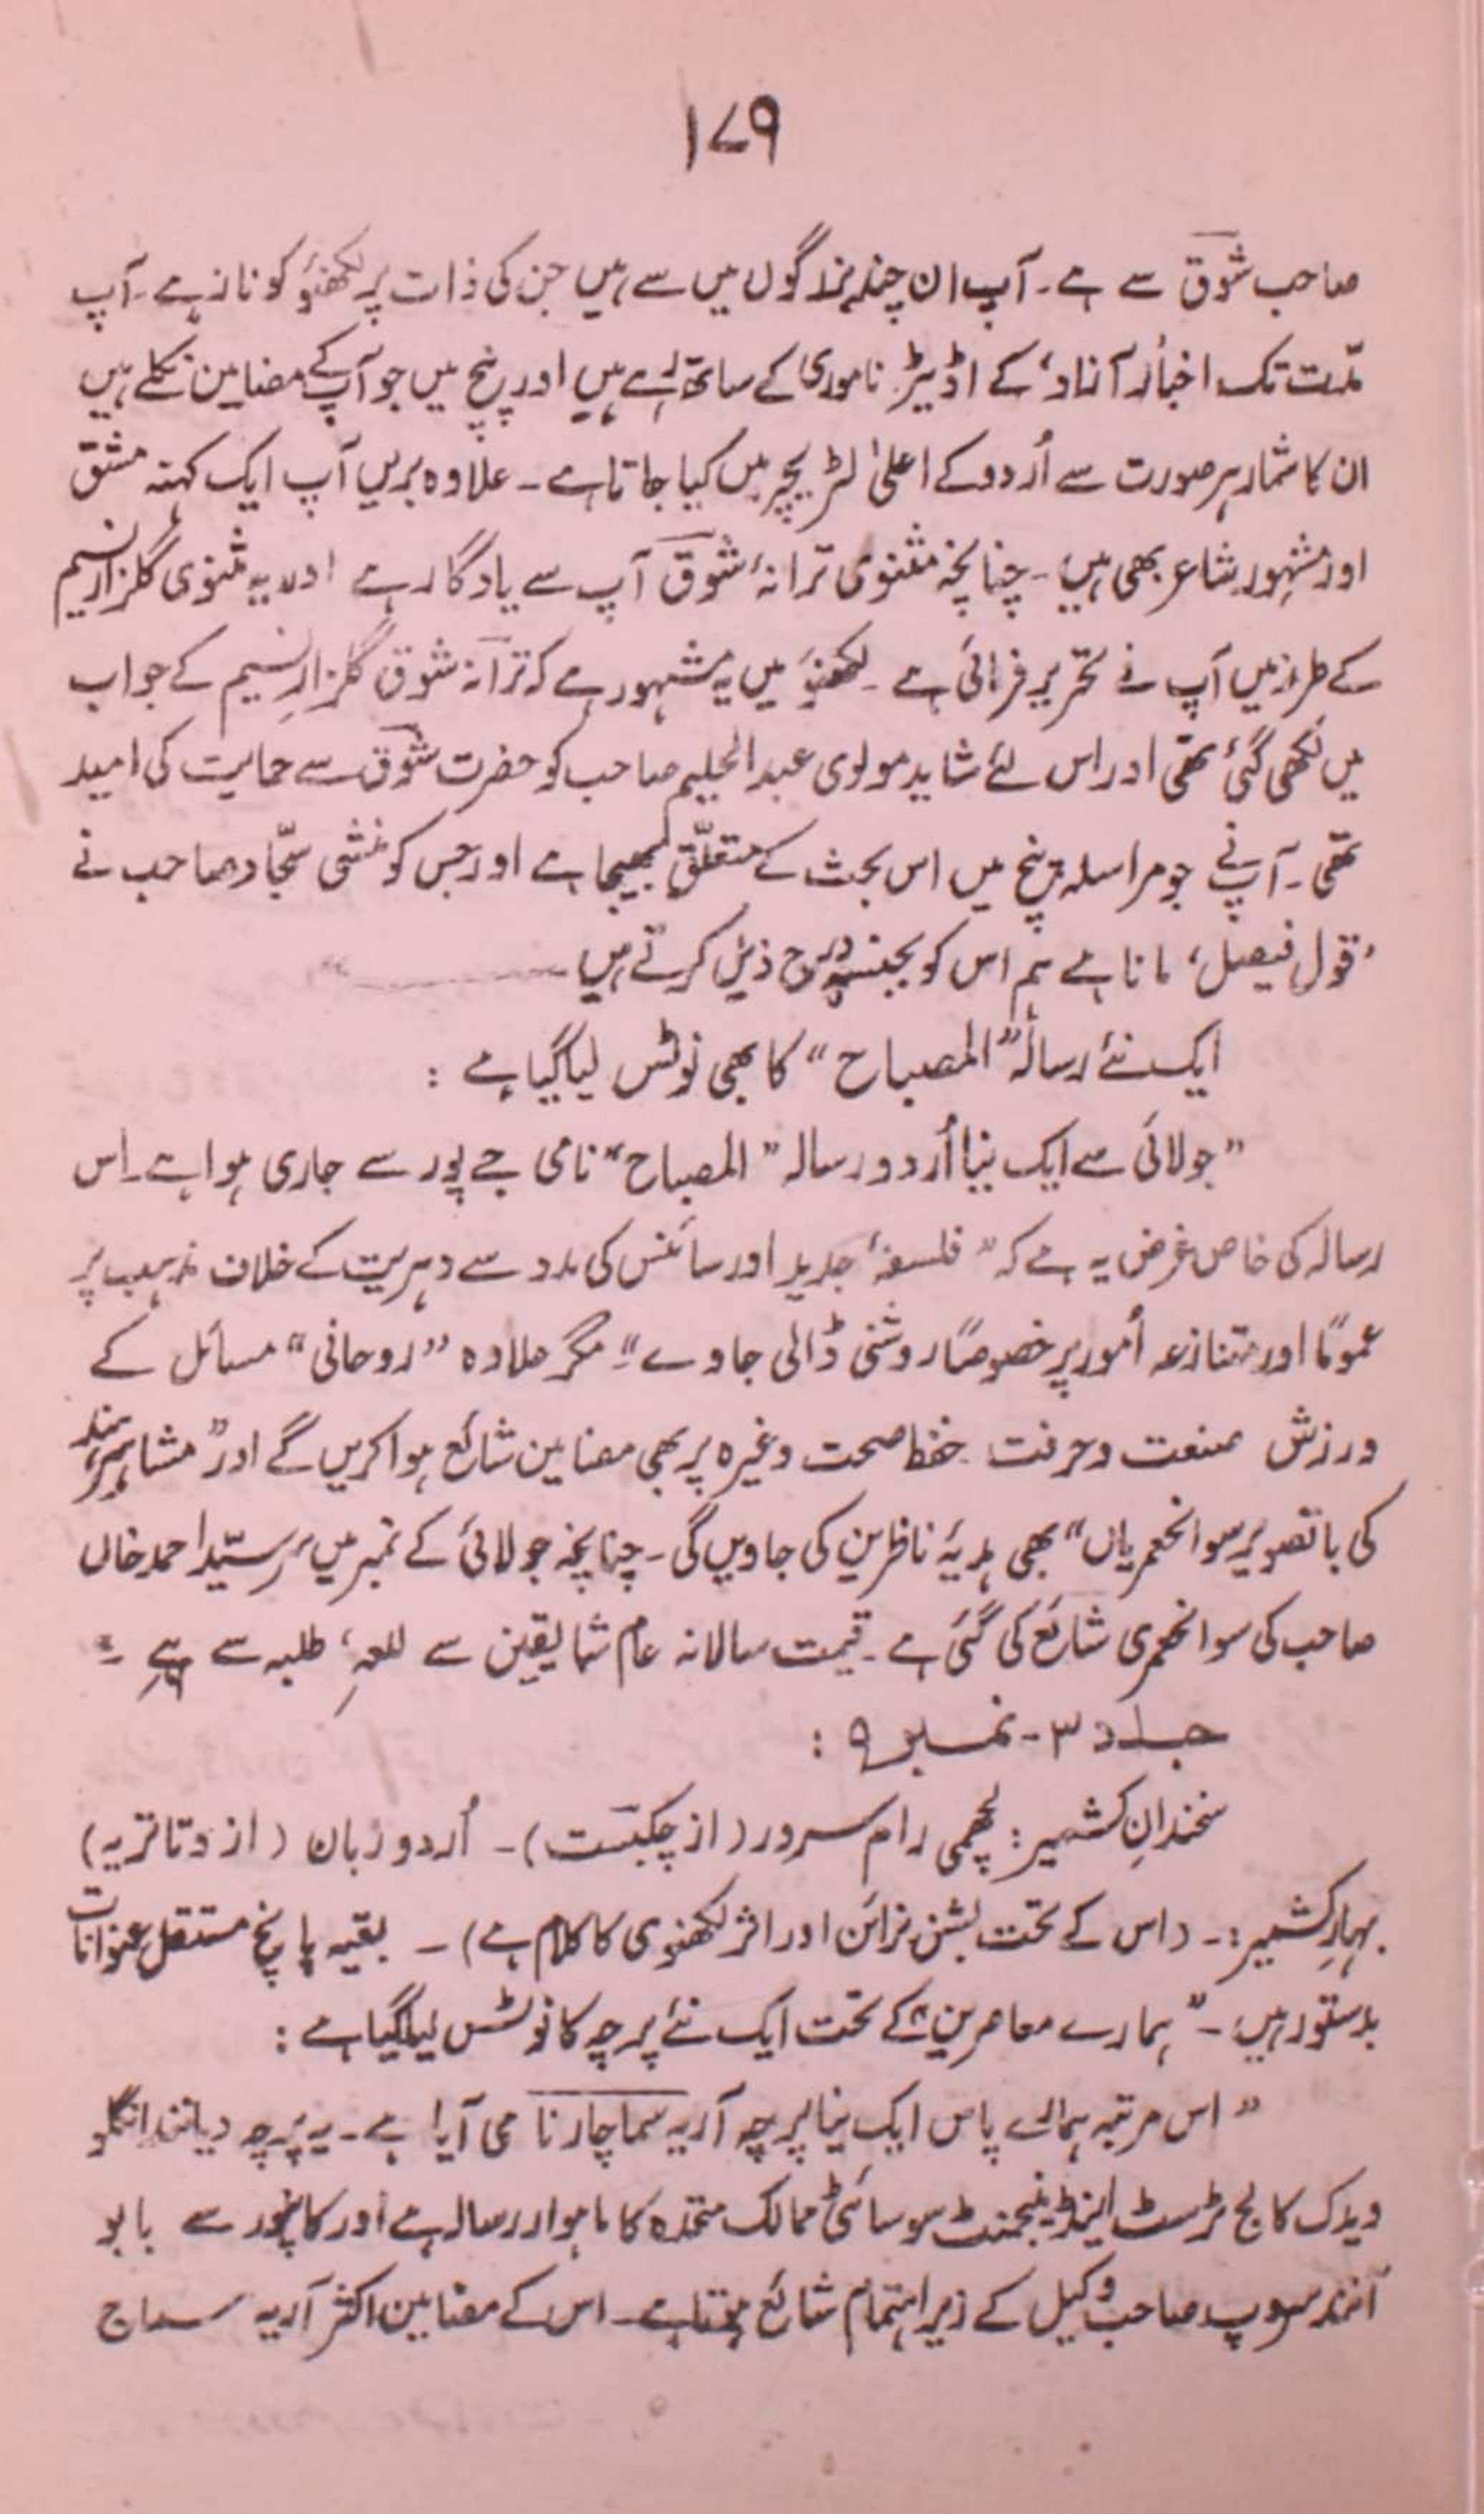 ۱۷۹
صاحب شوقؔ سے ہے۔ آپ ان چند بزرگوں میں سے ہیں جن کی ذات پر لکھنؤ کو ناز ہے۔ آپ
مدّت تک اخبار آزاد، کے اڈیٹر ناموری کے ساتھ رہے ہیں اور پنچ میں جو آپ کے مضامین نکلے ہیں
ان کا شمار ہر صورت سے اُردو کے اعلیٰ لٹریچر میں کیا جاتا ہے۔ علاوہ بریں آپ ایک کہنہ مشق
اور مشہور شاعر بھی ہیں۔ چنانچہ مثنوی ترانۂ شوقؔ آپ سے یادگار ہے اور یہ مثنوی گلزار نسیم
کے طرز میں آپ نے تحریر فرمائی ہے۔ لکھنؤ میں یہ مشہور ہے کہ ترانہ شوق گلزارِ نسیم کے جواب
میں لکھی گئی تھی اور اس لئے شاید مولوی عبدالحلیم صاحب کو حضرت شوقؔ سے حمایت کی امید
تھی۔ آپ نے جو مراسلہ پنچ میں اس بحث کے متعلّق بھیجا ہے اور جس کو منشی سجّاد صاحب نے
'قول فیصل، مانا ہے ہم اس کو بجنسہٖ درج ذیل کرتے ہیں ـــــ"
ایک نئے رسالہ "المصباح" کا بھی نوٹس لیا گیا ہے :
"جولائی سے ایک نیا اُردو رسالہ "المصباح" نامی جے پور سے جاری ہوا ہے۔ اس
رسالہ کی خاص غرض یہ ہے کہ "فلسفۂ جدید اور سائنس کی مدد سے دہریت کے خلاف مذہب پر
عموماً اور متنازعہ اُمور پر خصوصاً روشنی ڈالی جاوے"۔ مگر علاوہ "روحانی" مسائل کے
ورزش صنعت و حرفت حفظ صحت وغیرہ پر بھی مضامین شائع ہوا کریں گے اور "مشاہیر ہند
کی با تصویر سوانحعمریاں" بھی ہدیۂ ناظرین کی جاویں گی۔ چنانچہ جولائی کے نمبر میں سر سیّد احمد خاں
صاحب کی سوانحعمری شائع کی گئی ہے۔ قیمت سالانہ عام شایقین سے للعہ، طلبہ سے ہے۔"
جلد ۳ - نمبر ۹ :
سخندانِ کشمیر : لچھمی رام سرور (از چکبست)۔ اُردو زبان (از وتاتریہ)
بہارِ کشمیر :۔ (اس کے تحت بشن نرائن اور اثر لکھنوی کا کلام ہے) ۔ بقیہ پانچ مستقل عنوانات
بدستور ہیں۔ "ہمارے معاصرین" کے تحت ایک نئے پرچہ کا نوٹس لیا گیا ہے :
"اس مرتبہ ہمارے پاس ایک نیا پرچہ آریہ سماچار نامی آیا ہے۔ یہ پرچہ دیانند اینگلو
ویدک کالج ٹرسٹ اینڈ منیجمنٹ سوسائٹی ممالک متحدہ کا ماہوار رسالہ ہے اور کانپور سے بابو
آنند سروپ صاحب وکیل کے زیر اہتمام شائع ہوتا ہے۔ اس کے مضامین اکثر آریہ سماج